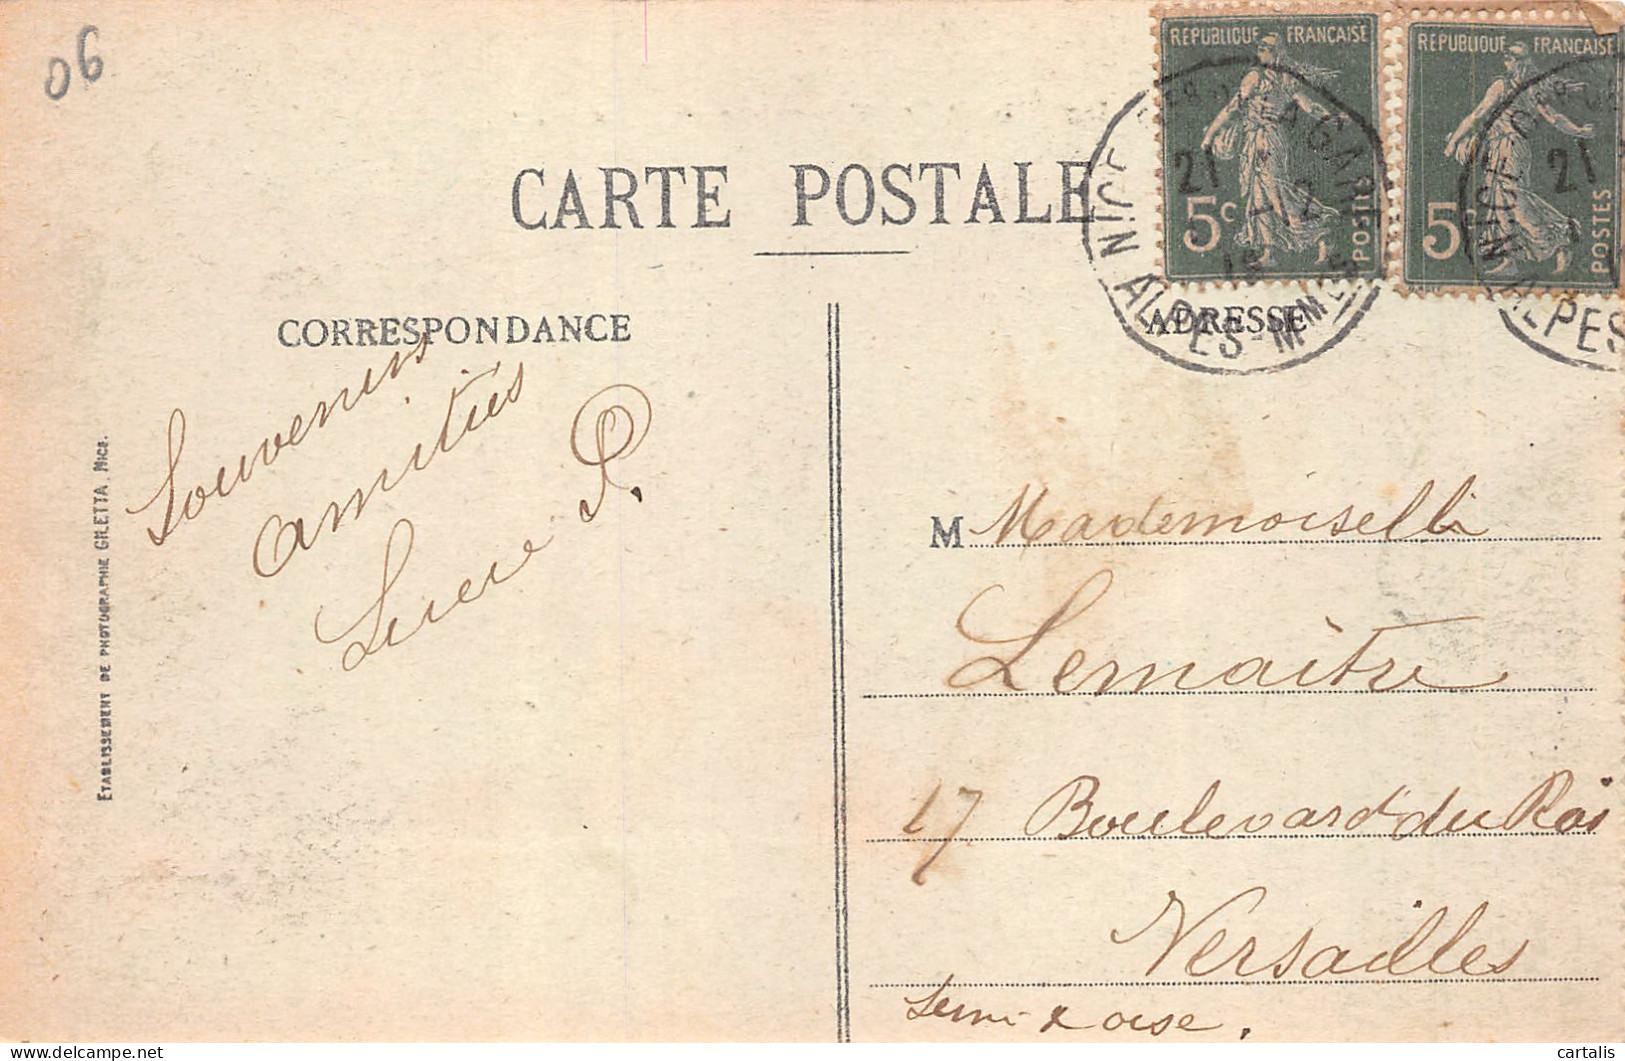 06
CARTE POSTALE
CORRESPONDANCE
ADRESSE
RÉPUBLIQUE FRANÇAISE
5c
POSTES
RÉPUBLIQUE FRANÇAISE
5c
POSTES
NICE
LA GARE
21
ALPES-MMES
NICE
21
ALPES
Souvenirs
amitiés
Lucie P.
ETABLISSEMENT DE PHOTOGRAPHIE GILETTA. NICE.
M Mademoiselle
Lemaitre
17 Boulevard du Roi
Versailles
Seine & Oise.
cartalis
delcampe.net